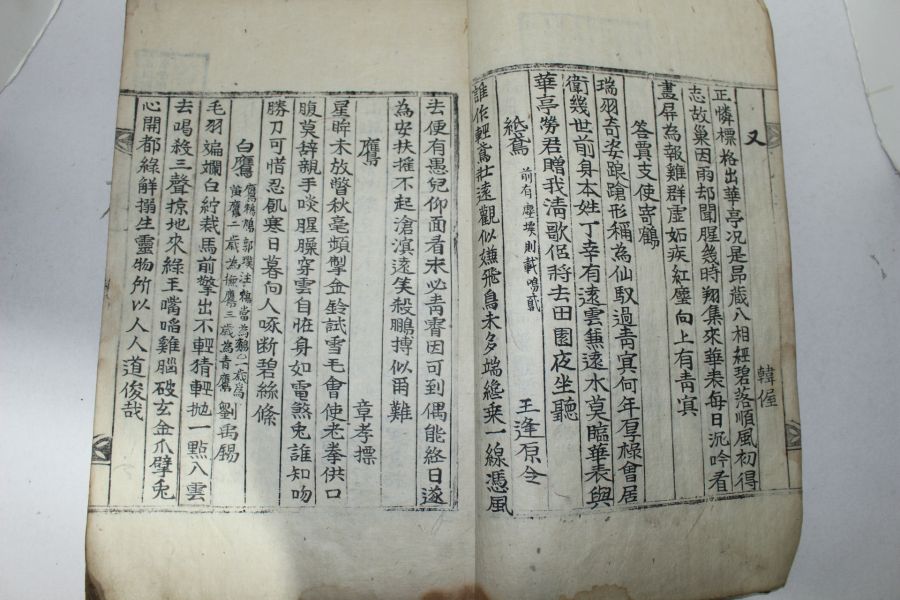 又
韓偓
正憐標格出華亭况是昂藏入相經碧落順風初得
志故巢因雨却聞腥幾時翔集來華表每日沉吟看
畫屏為報雞群虛妬疾紅塵向上有青冥
答賈支使寄鶴
瑞羽奇姿踉蹌形稱為仙馭過青冥何年厚祿曾居
衛幾世前身本姓丁幸有遠雲兼遠水莫臨華表與
華亭勞君贈我清歌侶將去田園夜坐聽
紙鳶
前有塵埃則載鳴鳶
王逢原令
誰作輕鳶壯遠觀似嫌飛鳥未多端纔乗一線憑風
去便有愚兒仰面看未必青霄因可到偶能終日遂
為安扶揺不起滄溟遠笑殺鵬摶似爾難
鷹
章孝標
星眸未放瞥秋毫頻掣金鈴試雪毛會使老拳供口
腹莫辞親手啖腥臊穿雲自恠身如電煞兎誰知吻
勝刀可惜忍飢寒日暮向人啄断碧絲條
白鷹
劉禹錫
毛羽斒斕白紵裁馬前擎出不輕猜輕抛一點入雲
去喝殺三聲掠地來綠玉嘴㗖雞腦破玄金爪擘兎
心開都緣解搦生靈物所以人人道俊哉